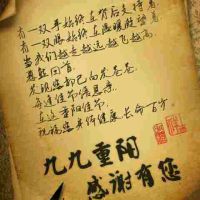 有一双手始终在背后支持着
有一双眼始终在温暖的望着
当我们越走越远越飞越高
蓦然回首
发现您都已白发苍苍
每逢佳节倍思亲
在这重阳佳节
祝福您身体健康长命百岁
九九重阳
感谢有您